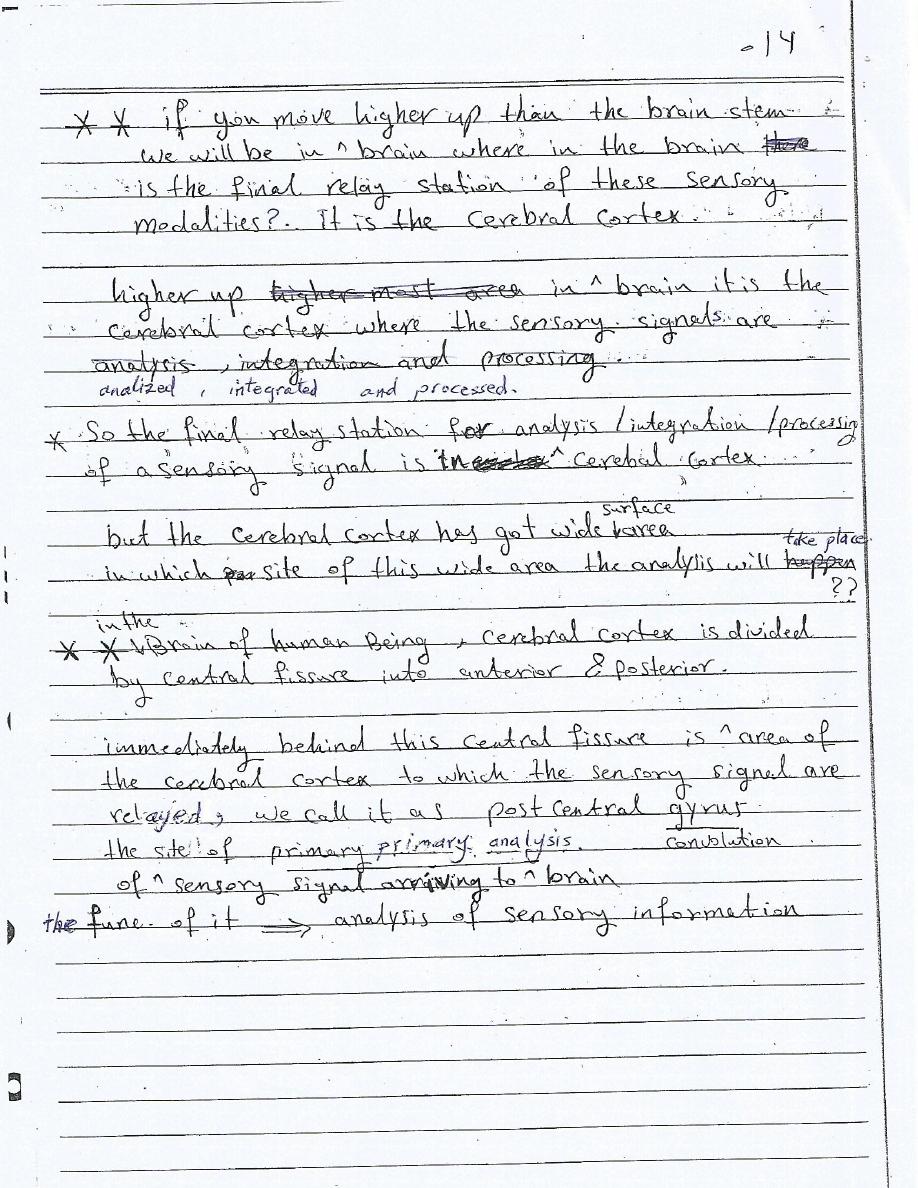 -14
* * if you move higher up than the brain stem
we will be in ^ brain where in the brain there
is the final relay station of these sensory
modalities?. It is the cerebral cortex.
higher up higher most area in ^ brain it is the
cerebral cortex where the sensory signals are
analysis, integration and processing.
analized, integrated and processed.
* So the final relay station for analysis / integration / processing
of a sensory signal is the ^ cerebal cortex.
surface
but the cerebral cortex has got wide area
take place
in which site of this wide area the analysis will happen
??
in the
* * Brain of human Being, cerebral cortex is divided
by central fissure into anterior & posterior.
immediately behind this central fissure is ^ area of
the cerebral cortex to which the sensory signal are
relayed, we call it as post central gyrus
the site of primary primary analysis. convolution
of ^ sensory signal arriving to ^ brain
the func. of it ⟹ analysis of sensory information